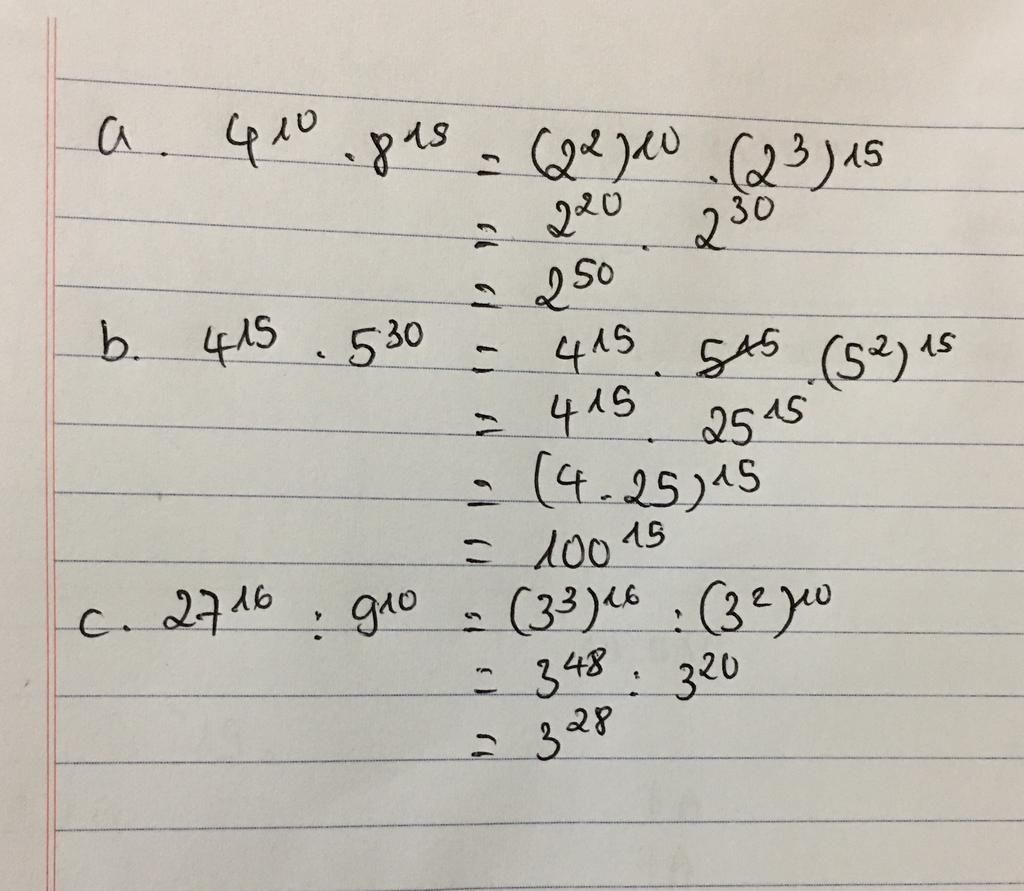 a. 4^10 . 8^15 = (2^2)^10 . (2^3)^15
= 2^20 . 2^30
= 2^50
b. 4^15 . 5^30 = 4^15 . (5^2)^15
= 4^15 . 25^15
= (4 . 25)^15
= 100^15
c. 27^16 : 9^10 = (3^3)^16 : (3^2)^10
= 3^48 : 3^20
= 3^28